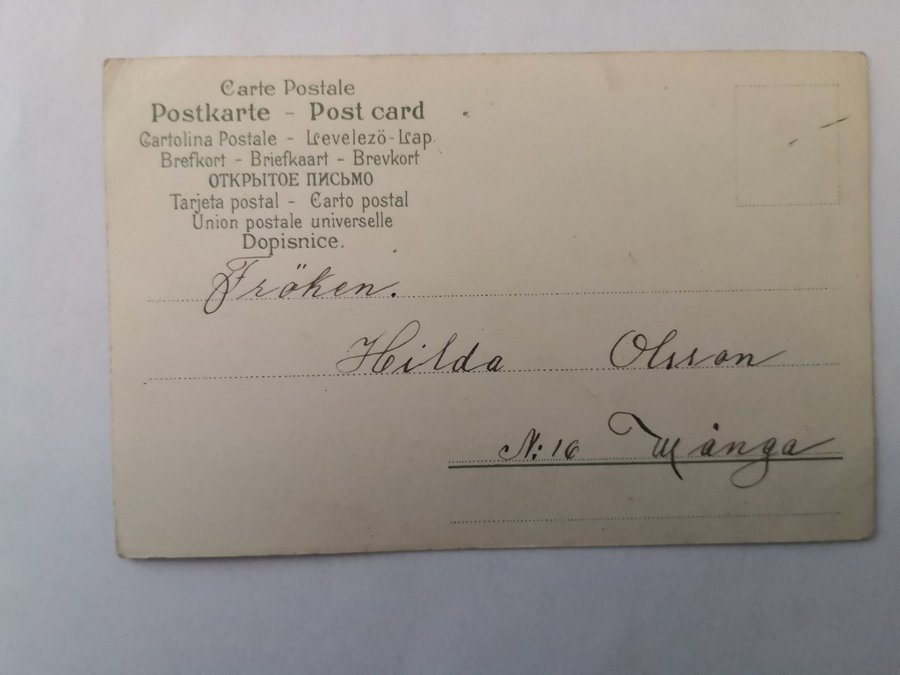 Carte Postale
Postkarte - Post card
Cartolina Postale - Levelező-Lap.
Brefkort - Briefkaart - Brevkort
ОТКРЫТОЕ ПИСЬМО
Tarjeta postal - Carto postal
Union postale universelle
Dopisnice.
Fröken.
Hilda Olsson
N: 16 Tånga